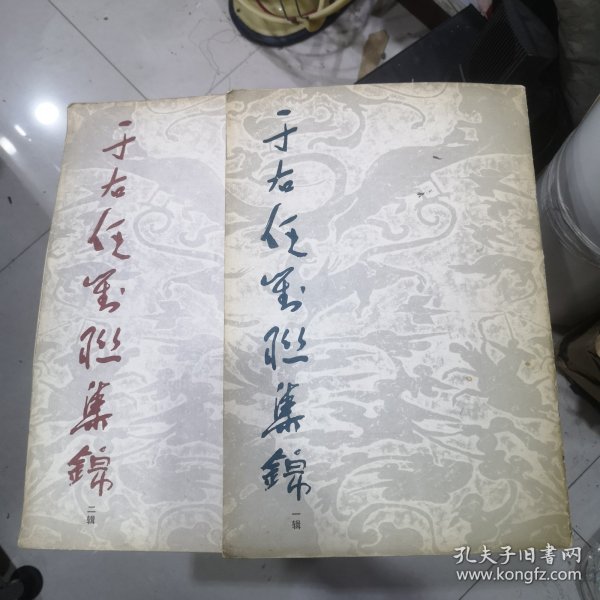 于右任对聯集錦
二辑
于右任对聯集錦
一辑
孔夫子旧書网
www.kongfz.com